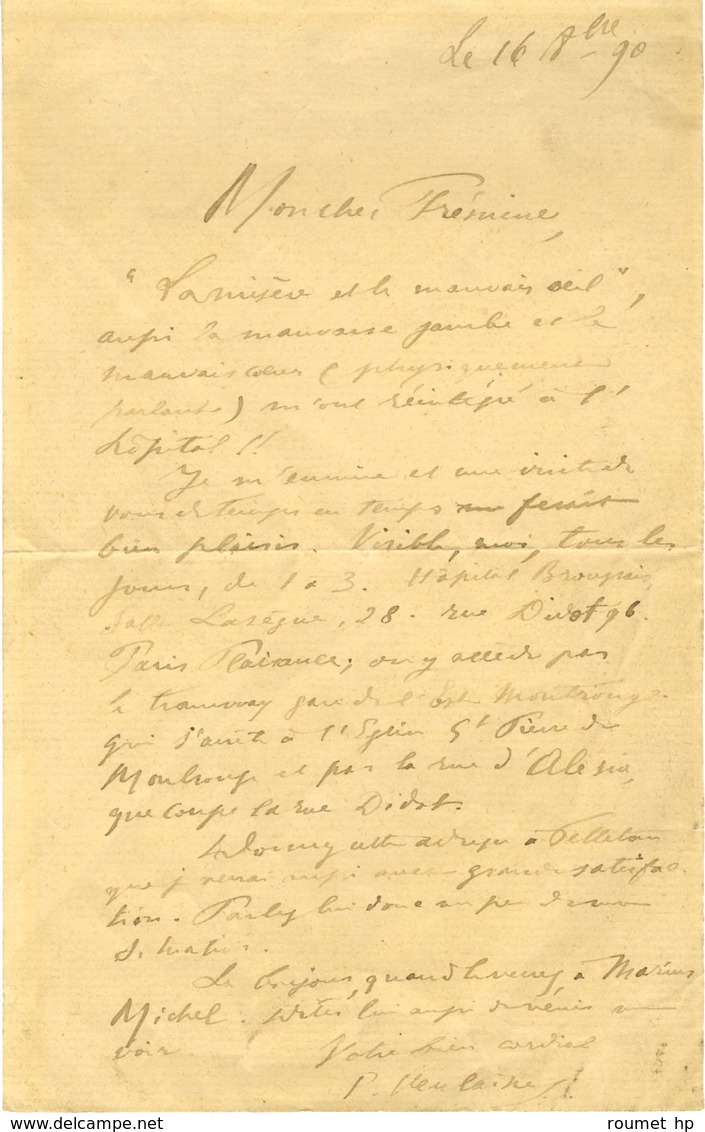 Le 16 8bre 90
Mon cher Frémine,
"La misère et le mauvais œil",
aussi la mauvaise jambe et le
mauvais cœur (physiquement
parlant) m'ont réintégré à l'
hôpital!!
Je m'ennuie et une visite de
vous de temps en temps me ferait
bien plaisir. Visible, moi, tous les
jours, de 1 à 3. Hôpital Broussais,
Salle Lasègue, 28. rue Didot 96.
Paris Plaisance; on y accède par
le tramway gare de l'Est Montrouge
qui s'arrête à l'Eglise St Pierre de
Montrouge et par la rue d'Alésia,
que coupe la rue Didot.
Donnez cette adresse à Pelletan
que je verrai aussi avec grande satisfac-
tion. Parlez lui donc un peu de ma
situation.
Le bonjour, quand le verrez, à Marius
Michel. dites lui aussi de venir me
voir.
Votre bien cordial
P. Verlaine
roumet hp